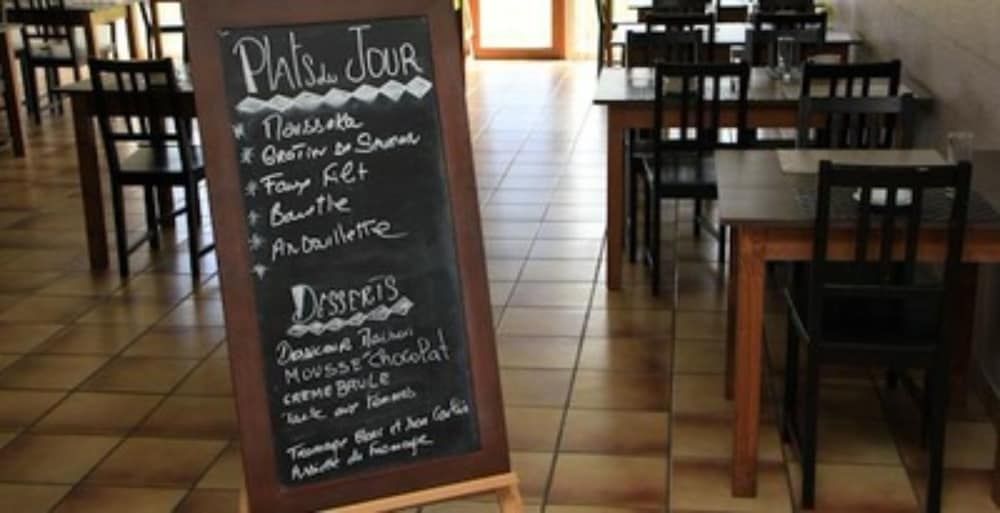 Plats du Jour
* Moussaka
* Gratin de Saumon
* Faux Filet
* Bavette
* Andouillette
*
DESSERTS
Douceur Maison
MOUSSE Chocolat
CREME BRULE
Tarte aux Pommes
Fromage Blanc et Son Coulis
Assiette de Fromage